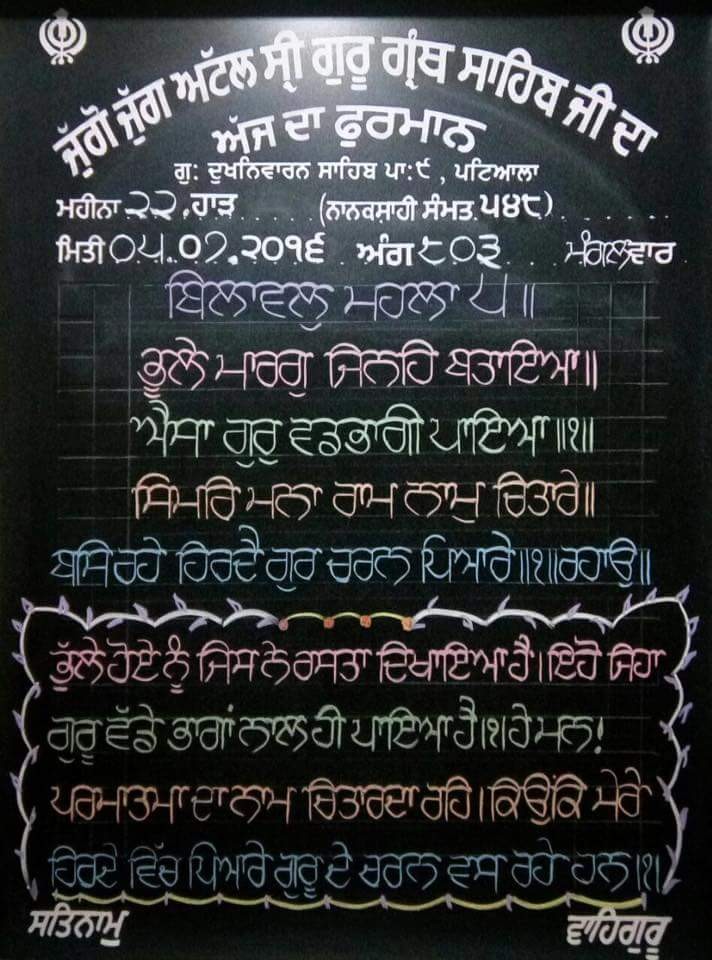 ਜੁੱਗੋ ਜੁੱਗ ਅਟੱਲ ਸ੍ਰੀ ਗੁਰੂ ਗ੍ਰੰਥ ਸਾਹਿਬ ਜੀ ਦਾ
ਅੱਜ ਦਾ ਫੁਰਮਾਨ
ਗੁ: ਦੁਖਨਿਵਾਰਨ ਸਾਹਿਬ ਪਾ:੯ , ਪਟਿਆਲਾ
ਮਹੀਨਾ ੨੨.ਹਾੜ ..... (ਨਾਨਕਸਾਹੀ ਸੰਮਤ.੫੪੮) .........
ਮਿਤੀ ੦੫.੦੭.੨੦੧੬ . ਅੰਗ ੮੦੩ ..... ਮੰਗਲਵਾਰ .
ਬਿਲਾਵਲੁ ਮਹਲਾ ੫॥
ਭੂਲੇ ਮਾਰਗੁ ਜਿਨਹਿ ਬਤਾਇਆ॥
ਐਸਾ ਗੁਰੁ ਵਡਭਾਗੀ ਪਾਇਆ॥੧॥
ਸਿਮਰਿ ਮਨਾ ਰਾਮ ਨਾਮੁ ਚਿਤਾਰੇ॥
ਬਸਿ ਰਹੇ ਹਿਰਦੈ ਗੁਰ ਚਰਨ ਪਿਆਰੇ॥੧॥ਰਹਾਉ॥
ਭੁੱਲੇ ਹੋਏ ਨੂੰ ਜਿਸ ਨੇ ਰਸਤਾ ਦਿਖਾਇਆ ਹੈ।ਇਹੋ ਜਿਹਾ
ਗੁਰੂ ਵੱਡੇ ਭਾਗਾਂ ਨਾਲ ਹੀ ਪਾਇਆ ਹੈ।੧।ਹੇ ਮਨ!
ਪਰਮਾਤਮਾ ਦਾ ਨਾਮ ਚਿਤਾਰਦਾ ਰਹਿ।ਕਿਉਂਕਿ ਮੇਰੇ
ਹਿਰਦੇ ਵਿੱਚ ਪਿਆਰੇ ਗੁਰੂ ਦੇ ਚਰਨ ਵਸ ਰਹੇ ਹਨ।੧।
ਸਤਿਨਾਮੁ ਵਾਹਿਗੁਰੂ